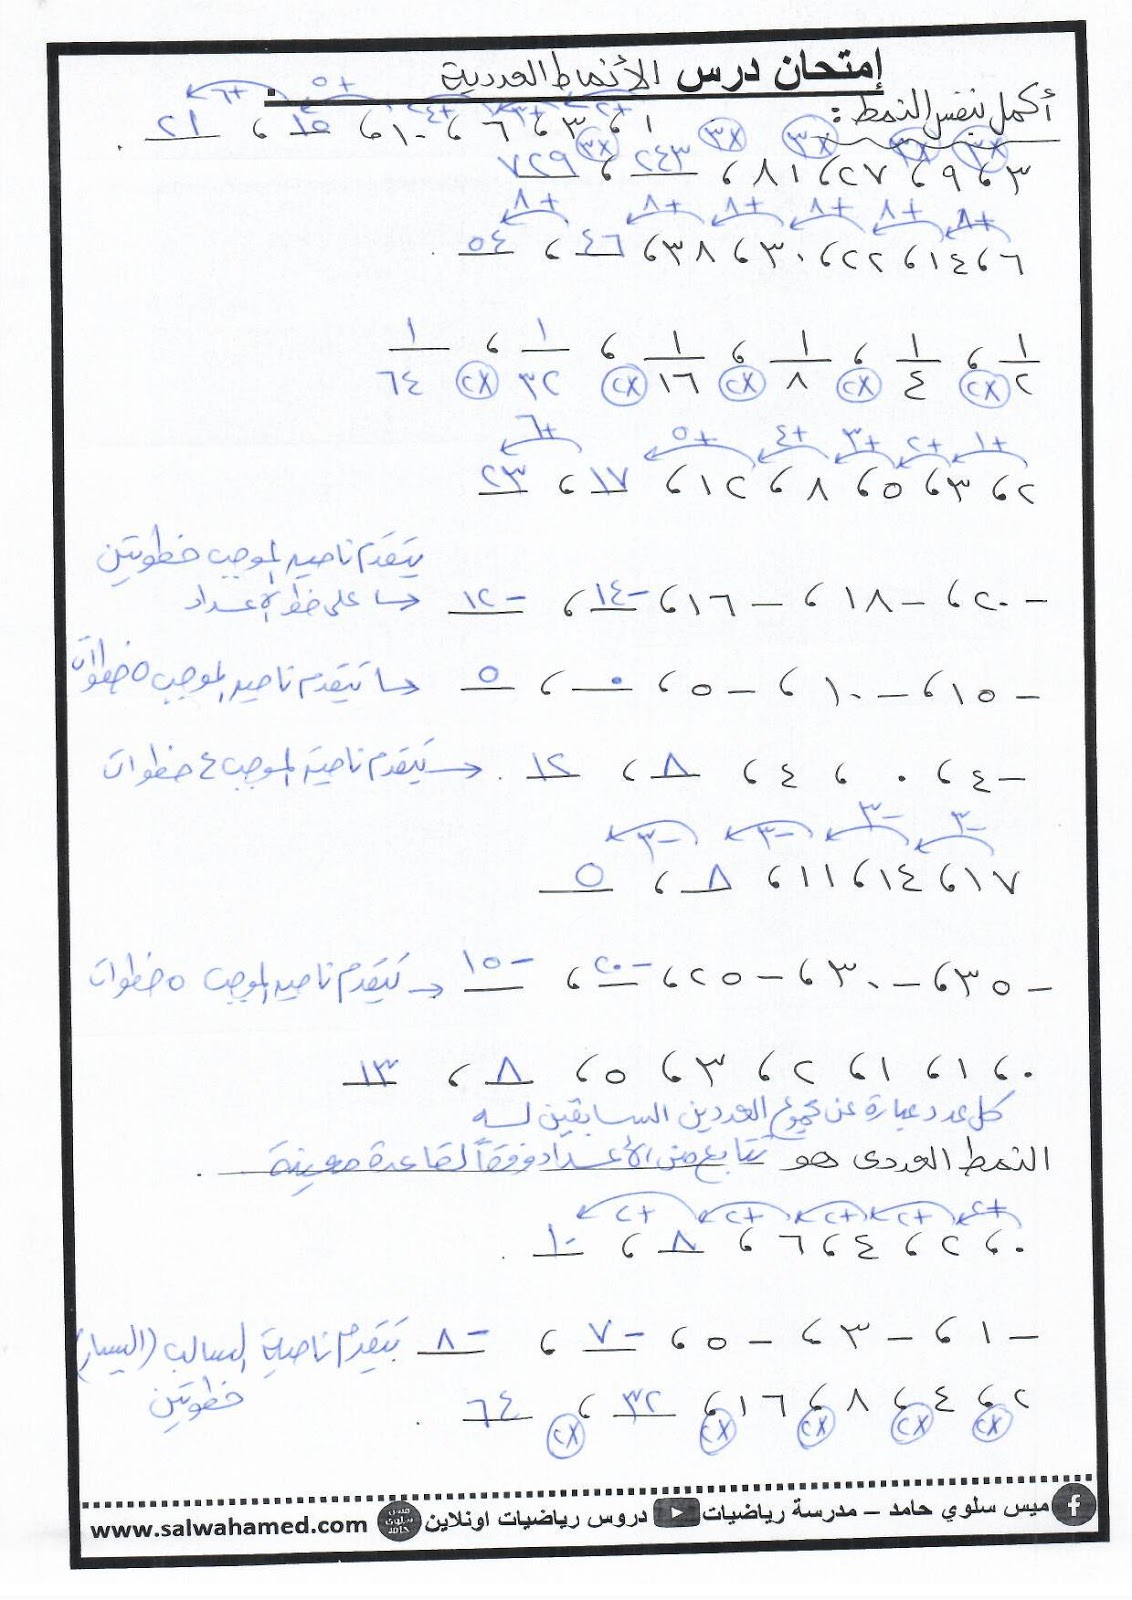 إمتحان درس الأنماط العددية
أكمل بنفس النمط :
١ ، ٣ ، ٦ ، ١٠ ، ١٥ ، ٢١ .
+٢ +٣ +٤ +٥ +٦
٣ ، ٩ ، ٢٧ ، ٨١ ، ٢٤٣ ، ٧٢٩
×٣ ×٣ ×٣ ×٣ ×٣
+٨ +٨ +٨ +٨ +٨ +٨
٦ ، ١٤ ، ٢٢ ، ٣٠ ، ٣٨ ، ٤٦ ، ٥٤ .
١/٢ ، ١/٤ ، ١/٨ ، ١/١٦ ، ١/٣٢ ، ١/٦٤
×٢ ×٢ ×٢ ×٢ ×٢
+١ +٢ +٣ +٤ +٥ +٦
٢ ، ٣ ، ٥ ، ٨ ، ١٢ ، ١٧ ، ٢٣
-٢٠ ، -١٨ ، -١٦ ، -١٤ ، -١٢ → يتقدم ناحيه الموجب خطوتين على خط الاعداد
-١٥ ، -١٠ ، -٥ ، ٠ ، ٥ → تتقدم ناحيه الموجب ٥ خطوات
-٤ ، ٠ ، ٤ ، ٨ ، ١٢ . → تتقدم ناحية الموجب ٤ خطوات
-٣ -٣ -٣ -٣
١٧ ، ١٤ ، ١١ ، ٨ ، ٥
-٣٥ ، -٣٠ ، -٢٥ ، -٢٠ ، -١٥ → تتقدم ناحيه الموجب ٥ خطوات
٠ ، ١ ، ١ ، ٢ ، ٣ ، ٥ ، ٨ ، ١٣
كل عدد عبارة عن مجموع العددين السابقين له
النمط العددى هو تتابع من الأعداد وفقاً لقاعدة معينة .
+٢ +٢ +٢ +٢ +٢
٠ ، ٢ ، ٤ ، ٦ ، ٨ ، ١٠ .
-١ ، -٣ ، -٥ ، -٧ ، -٨ يتقدم ناحية السالب (اليسار) خطوتين
٢ ، ٤ ، ٨ ، ١٦ ، ٣٢ ، ٦٤ .
×٢ ×٢ ×٢ ×٢ ×٢
ميس سلوي حامد – مدرسة رياضيات دروس رياضيات اونلاين ميس سلوى حامد www.salwahamed.com